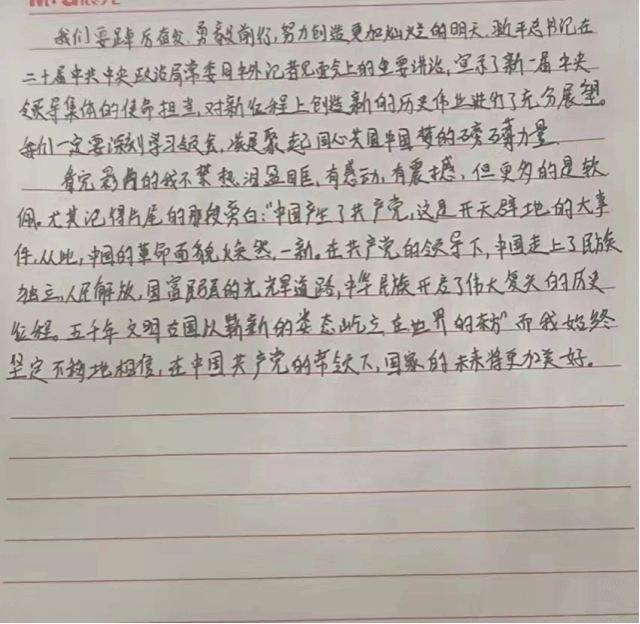 我们要踔厉奋发、勇毅前行,努力创造更加灿烂的明天。近平总书记在
二十届中共中央政治局常委同中外记者见面会上的重要讲话,宣示了新一届中央
领导集体的使命担当,对新征程上创造新的历史伟业进行了充分展望。
我们一定要深刻学习领会,凝聚起同心共圆中国梦的磅礴力量。
看完影片的我不禁热泪盈眶,有感动,有震撼,但更多的是钦
佩。尤其记得片尾的那段旁白:"中国产生了共产党,这是开天辟地的大事
件,从此,中国的革命面貌焕然一新。在共产党的领导下,中国走上了民族
独立、人民解放、国富民强的光辉道路,中华民族开启了伟大复兴的历史
征程。五千年文明古国以崭新的姿态屹立在世界的东方"而我始终
坚定不移地相信,在中国共产党的带领下,国家的未来将更加美好。